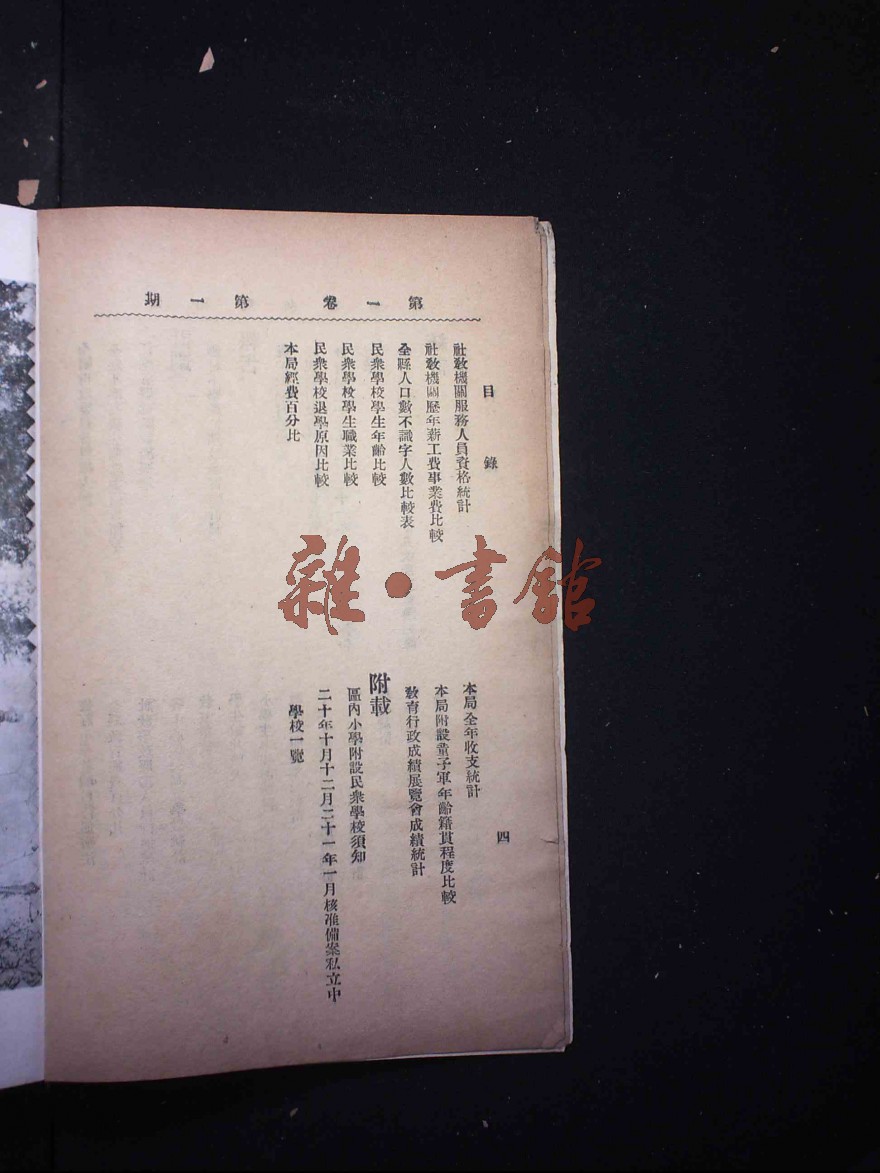 第一卷 第一期
目錄
四
社敎機關服務人員資格統計
社敎機關歷年薪工費事業費比較
全縣人口數不識字人數比較表
民衆學校學生年齡比較
民衆學校學生職業比較
民衆學校退學原因比較
本局經費百分比
本局全年收支統計
本局附設童子軍年齡籍貫程度比較
敎育行政成績展覽會成績統計
附載
區內小學附設民衆學校須知
二十年十月十二月二十一年一月核准備案私立中
學校一覽
雜·書館